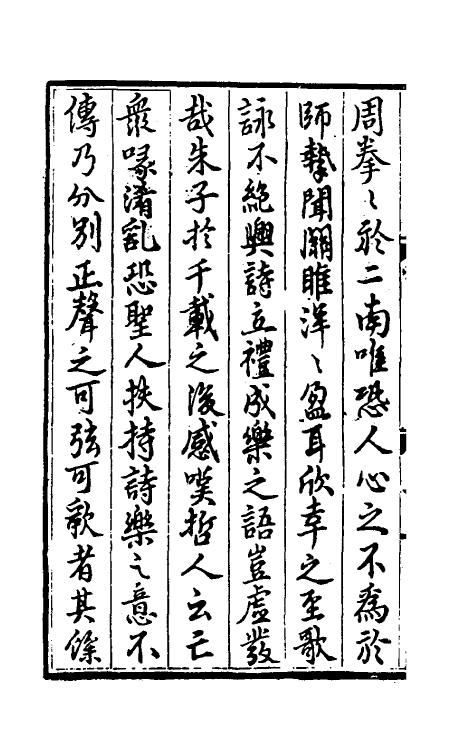 周拳〻於二南唯恐人心之不為於
師摯聞關雎洋〻盈耳欣幸之至歌
詠不絶興詩立禮成樂之語豈虛發
哉朱子於千載之後感嘆哲人云亡
衆喙淆亂恐聖人扶持詩樂之意不
傳乃分別正聲之可弦可歌者其餘